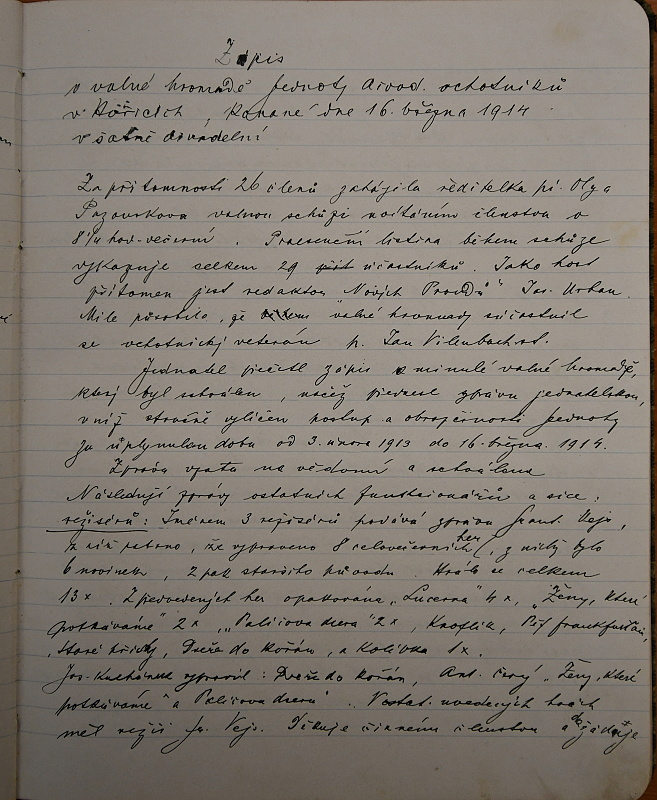 Zápis
o valné hromadě Jednoty divad. ochotníků
v Hořicích, konané dne 16. března 1914
v šatně divadelní
Za přítomnosti 26 členů zahájila ředitelka pí. Olga
Pazourkova valnou schůzi uvítáním členstva o
8¼ hod. večerní. Praesenční listina během schůze
vykazuje celkem 29 účastníků. Jako host
přítomen jest redaktor "Nových Proudů" Jos. Urban.
Mile působilo, že valné hromady súčastnil
se ochotnický veterán p. Jan Vilenbach st.
Jednatel přečetl zápis o minulé valné hromadě,
který byl schválen, načež přednesl zprávu jednatelskou,
v níž stručně vylíčen postup a obraz činnosti Jednoty
za uplynulou dobu od 3. února 1913 do 16. března. 1914.
Zpráva vzata na vědomí a schválena
Následují zprávy ostatních funkcionářů a sice:
režisérů: Jménem 3 režisérů podává zprávu Frant. Vejs,
z níž patrno, že vypraveno 8 celovečerních her, z nichž bylo
6 novinek, 2 pak staršího původu. Hrálo se celkem
13x. Z předvedených her opakována "Lucerna" 4x, "Ženy, které
potkáváme" 2x, "Paličova dcera" 2x, Knoflík, Pět frankfurtčanů,
Staré hříchy, Duše do kořán, a Kolébka 1x.
Jos. Kuchánek vypravil: Duše do kořán, Ant. Černý "Ženy, které
potkáváme" a "Paličova dcera". V ostat. uvedených hrách
měl režii Fr. Vejs. Děkuje činnému členstvu a žádá je